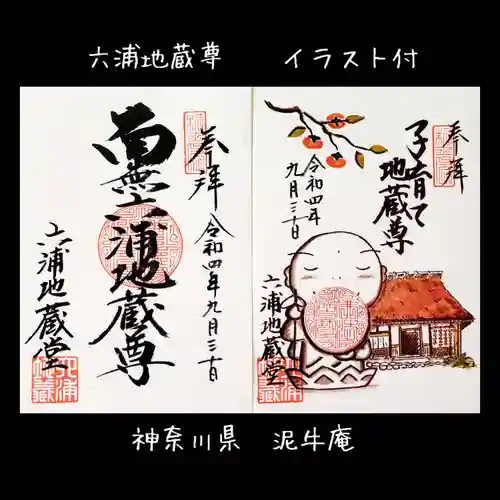 六浦地蔵尊 イラスト付
奉拝
令和四年九月三十日
南無六浦地蔵尊
六浦地蔵堂
奉拝
子育て
地蔵尊
令和四年
九月三十日
六浦地蔵堂
六浦
地蔵
神奈川県 泥牛庵